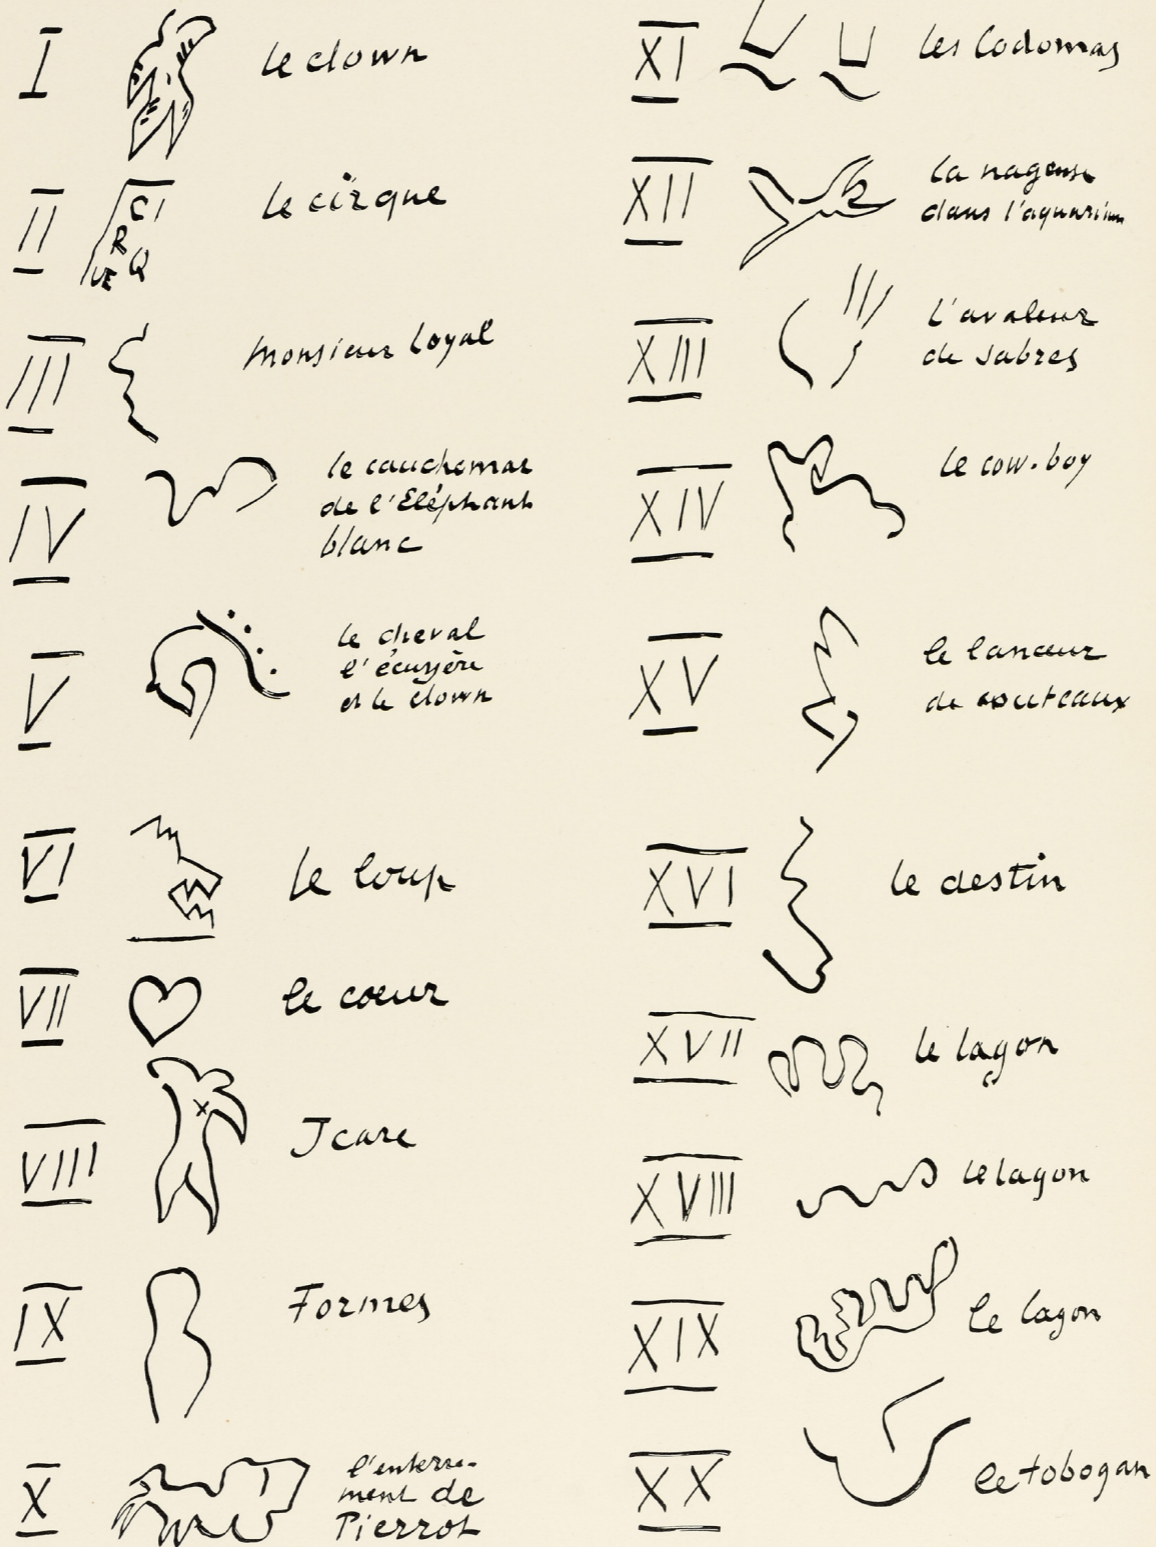 I
le clown
II
CI
R
Q
UE
le cirque
III
Monsieur Loyal
IV
le cauchemar
de l'Eléphant
blanc
V
le cheval
l'écuyère
et le clown
VI
le loup
VII
le coeur
VIII
Icare
IX
Formes
X
l'enterre-
ment de
Pierrot
XI
les Codomas
XII
la nageuse
dans l'aquarium
XIII
l'avaleur
de sabres
XIV
le cow-boy
XV
le lanceur
de couteaux
XVI
le destin
XVII
le lagon
XVIII
le lagon
XIX
le lagon
XX
le tobogan